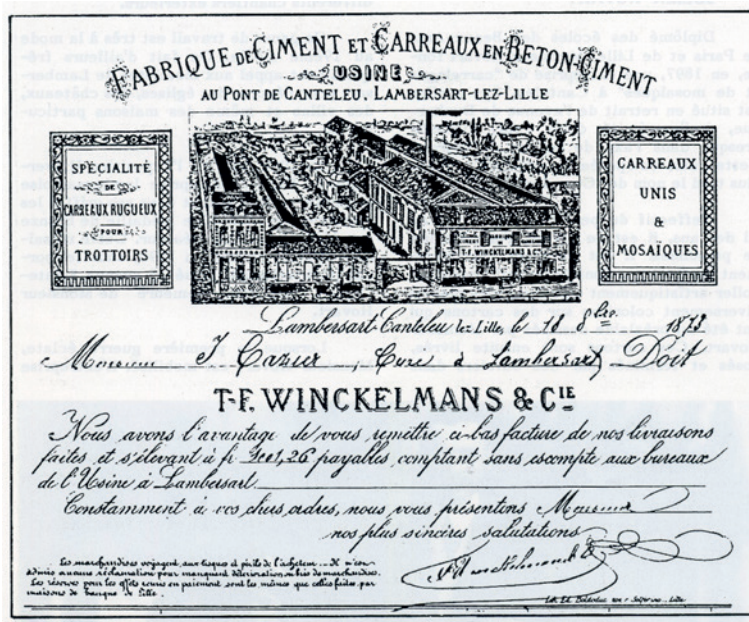 FABRIQUE DE CIMENT ET CARREAUX EN BETON-CIMENT
USINE
AU PONT DE CANTELEU, LAMBERSART-LEZ-LILLE
SPÉCIALITÉ
DE
CARREAUX RUGUEUX
POUR
TROTTOIRS
T-F. WINCKELMANS & Cie
CARREAUX
UNIS
ET
MOSAÏQUES
Lambersart-Canteleu lez Lille, le 10 8bre. 18
Monsieur J Cazier, Curé à Lambersart, Doit
T-F. WINCKELMANS & CIE
Nous avons l'avantage de vous remettre ci-bas facture de nos livraisons
faites et s'élevant à fr ,26 payables comptant sans escompte aux bureaux
de l'Usine à Lambersart.
Constamment à vos chers ordres, nous vous présentons Monsieur
nos plus sincères salutations
Les marchandises voyagent aux risques et périls de l'acheteur... Il n'est
admis aucune réclamation pour manquant détérioration ou bris de marchandises.
Les réserves pour les effets remis en paiement sont les mêmes que celles faites par
maisons de banque de Lille.
Lith. Ed. Lille